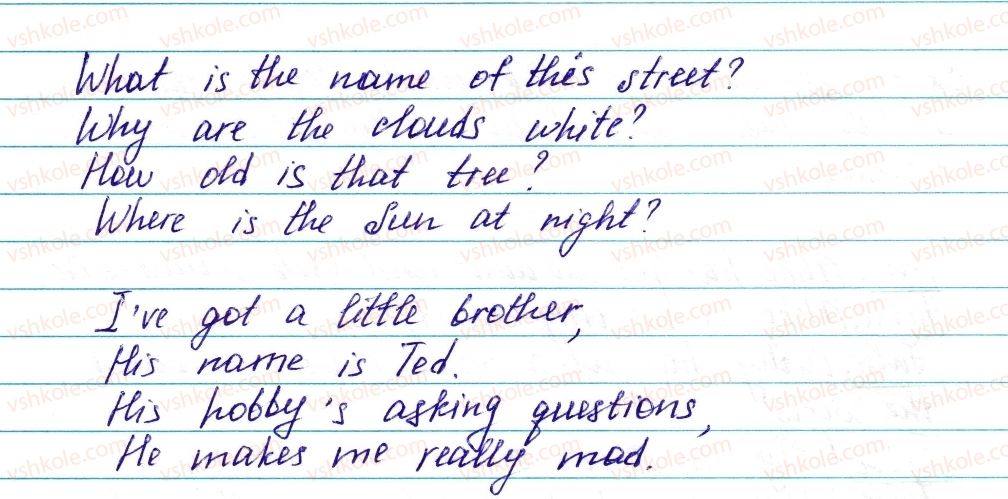 What is the name of this street?
Why are the clouds white?
How old is that tree?
Where is the Sun at night?
I've got a little brother,
His name is Ted.
His hobby's asking questions,
He makes me really mad.